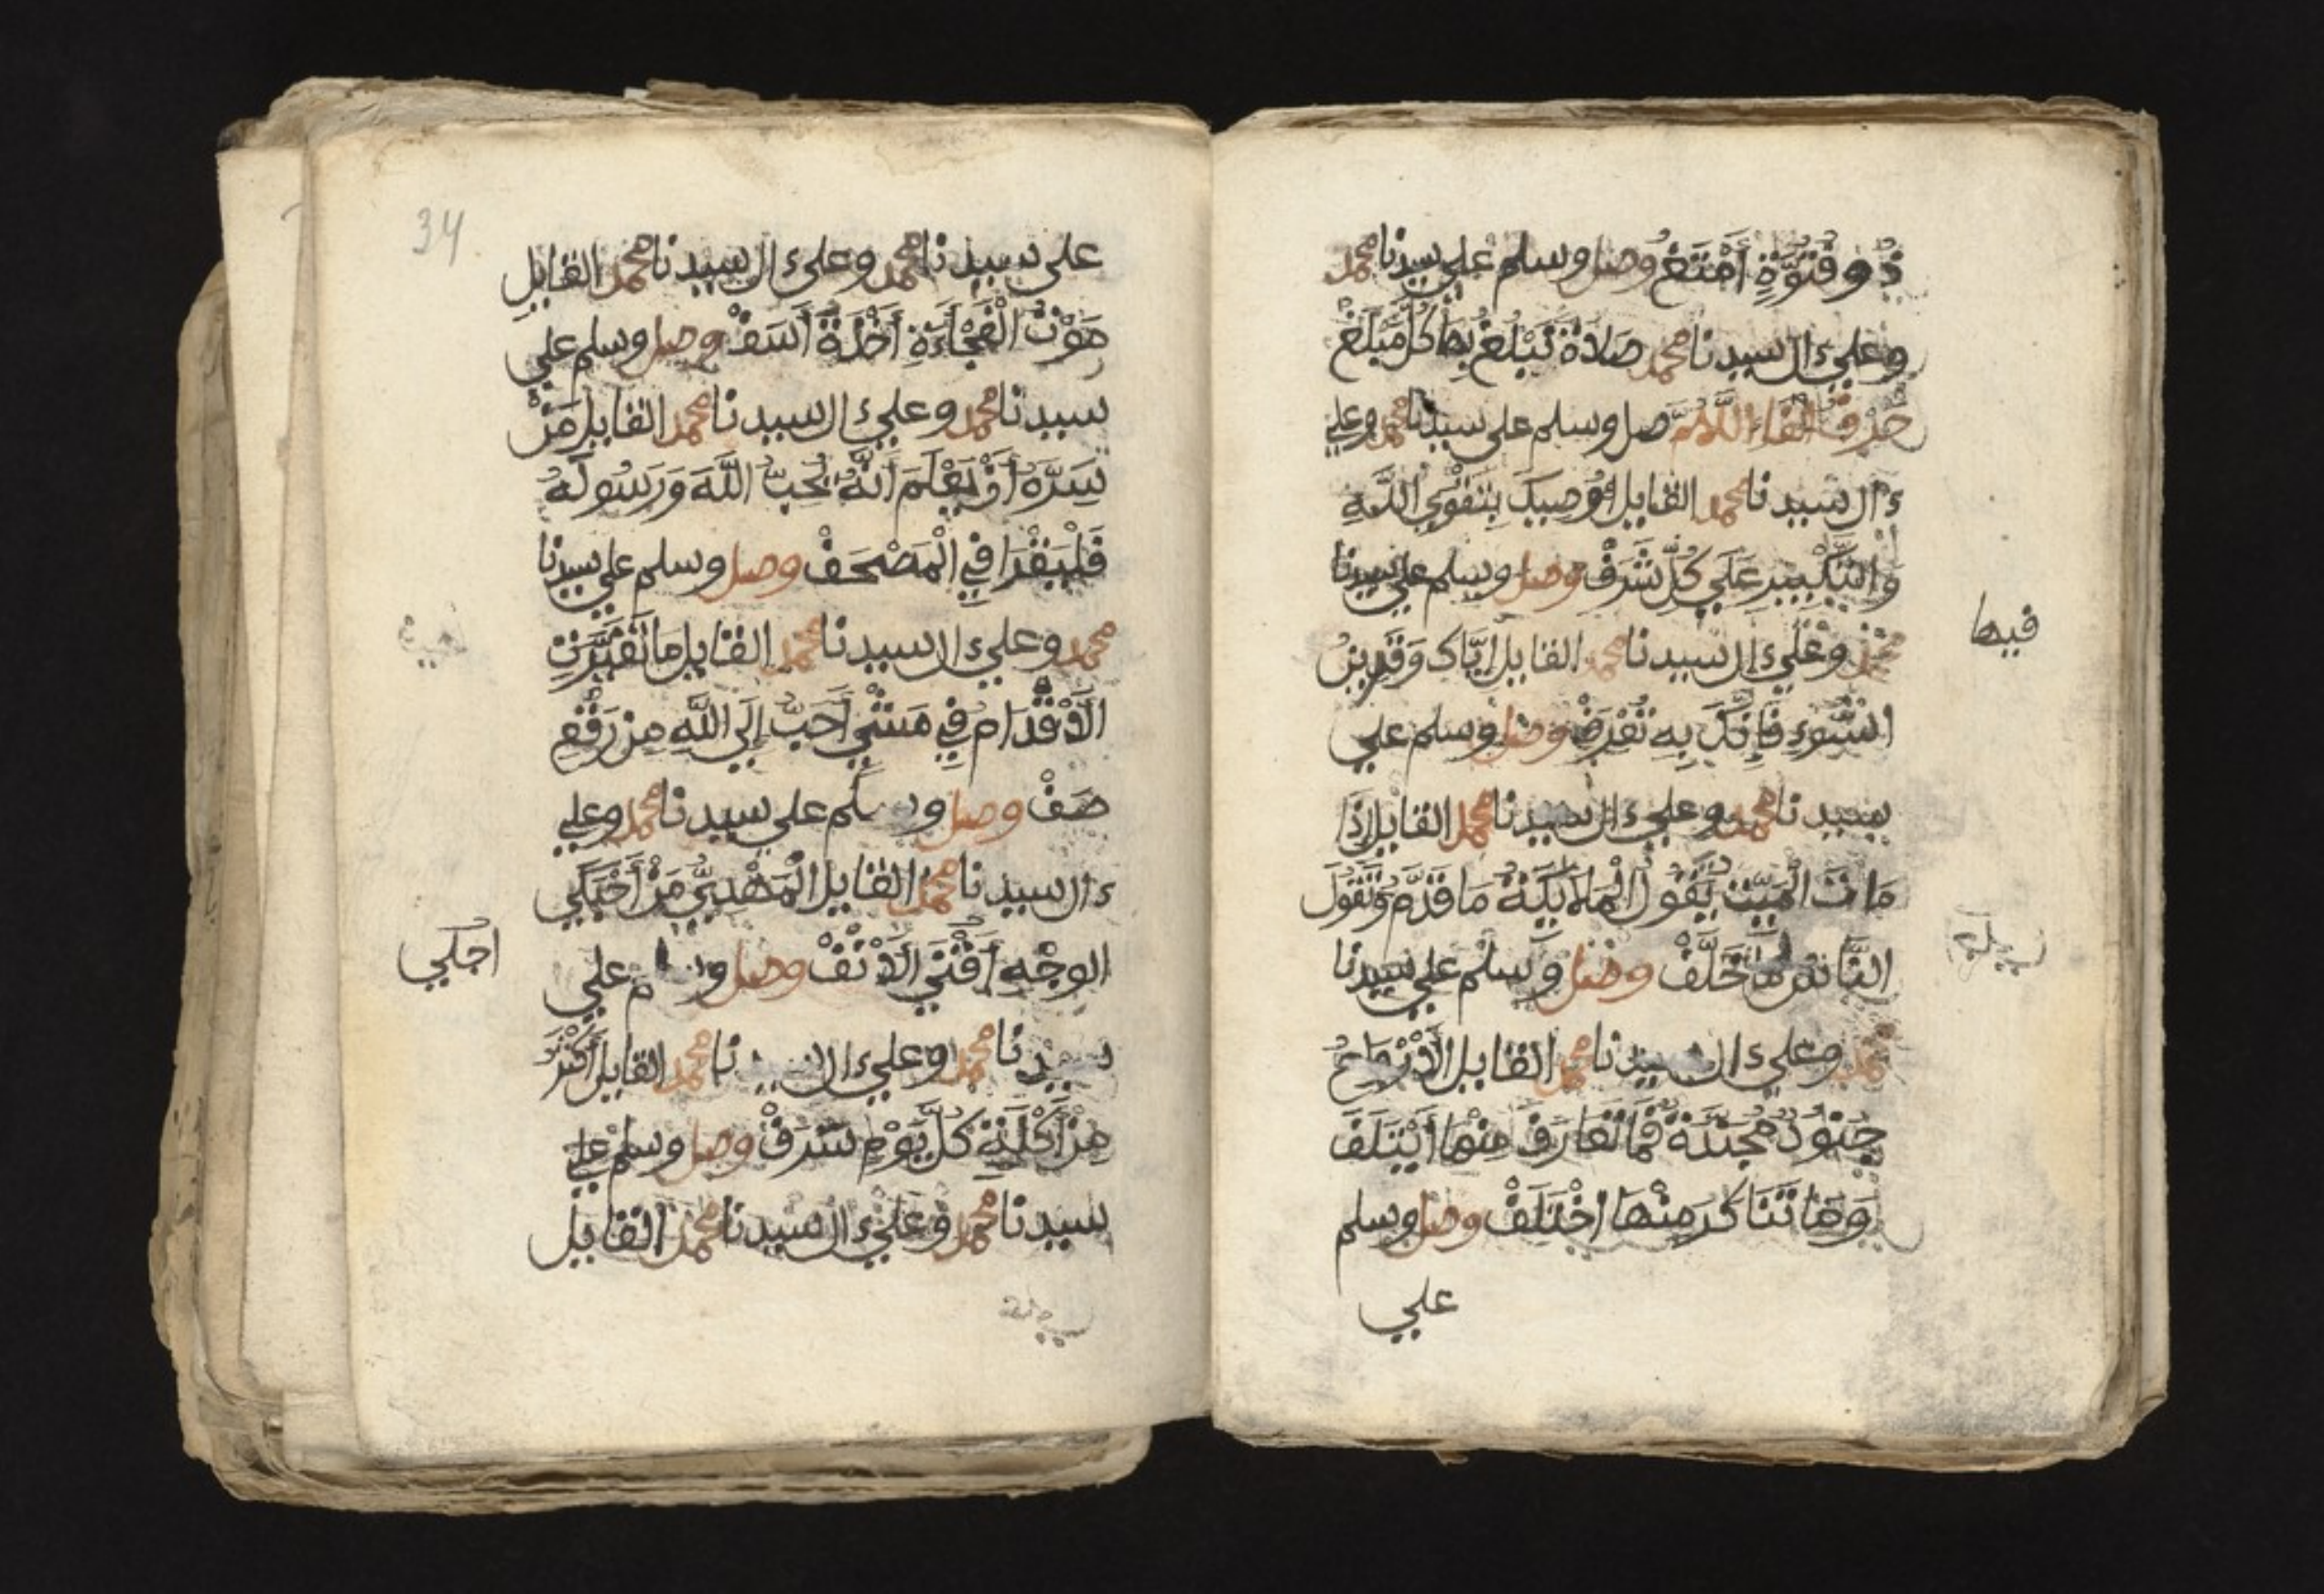 ذُو قُوَّةٍ أَمْتَغْ وصل وسلم علي سيدنا محمد
وعلي ءال سيدنا محمد صَلَاةً تَبْلُغُ بِهَا كُلَّ مَبْلَغْ
حَرْفُ الْفَاءِ اللَّهُمَّ صل وسلم علي سيدنا محمد وعلي
ءال سيدنا محمد القايل أُوصِيكَ بِتَقْوَي اللَّهِ
وَالتَّكْبِيرِ عَلَي كُلِّ شَرَفْ وصل وسلم علي سيدنا
محمد وعلي ءال سيدنا محمد القايل إِيَّاكَ وَقَرِينَ
السُّوءِ فَإِنَّكَ بِهِ تُعْرَفْ وصل وسلم علي
سيدنا محمد وعلي ءال سيدنا محمد القايل إِذَا
مَاتَ الْمَيِّتُ يَقُولُ الْمَلَايِكَةُ مَا قَدَّمَ وَيَقُولُ
النَّاسُ مَا خَلَّفْ وصل وسلم علي سيدنا
محمد وعلي ءال سيدنا محمد القايل الْأَرْوَاحُ
جُنُودٌ مُجَنَّدَةٌ فَمَا تَعَارَفَ مِنْهَا اَيْتَلَفَ
وَمَا تَنَاكَرَ مِنْهَا اخْتَلَفْ وصل وسلم
علي
فيها
34
علي سيدنا محمد وعلي ءال سيدنا محمد القايل
مَوْتُ الْفَجْأَةِ أَخْذَةُ أَسَفْ وصل وسلم علي
سيدنا محمد وعلي ءال سيدنا محمد القايل مَنْ
سَرَّهُ أَنْ يَعْلَمَ أَنَّهُ يُحِبُّ اللَّهَ وَرَسُولَهُ
فَلْيَقْرَا فِي الْمَصْحَفْ وصل وسلم علي سيدنا
محمد وعلي ءال سيدنا محمد القايل مَا تَغَبَّرَتِ
الْأَقْدَامُ فِي مَشْيٍ أَحَبَّ إِلَي اللَّهِ مِنْ رَقْعِ
صَفْ وصل وسلم علي سيدنا محمد وعلي
ءال سيدنا محمد القايل الْمَهْدِيُّ مِنْ أَجْلَي
الوجْهِ أَقْنَي الْأَنْفْ وصل وسلم علي
سيدنا محمد وعلي ءال سيدنا محمد القايل أَكْثَرُ
مِنْ أَكْلَةٍ كُلَّ يَوْمٍ سَرَفْ وصل وسلم علي
سيدنا محمد وعلي ءال سيدنا محمد القايل
اجلي